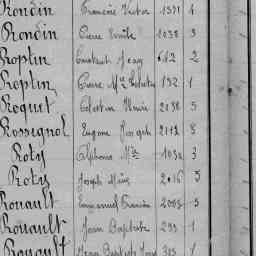 Rondin François Victor 1371 1
Rondin Pierre Emile 1038 3
Roptin Constant Jean 612 2
Roptin Pierre Mie 132 1
Roquet Célestin Henri 2038 5
Rossignol Eugène Joseph 2113 8
Roty Alphonse Mie 1034 3
Roty Joseph Aimé 2016 5
Rouault Emmanuel Francis 2003 5
Rouault Jean Baptiste 293 1
Rouault Jean Baptiste 323 1